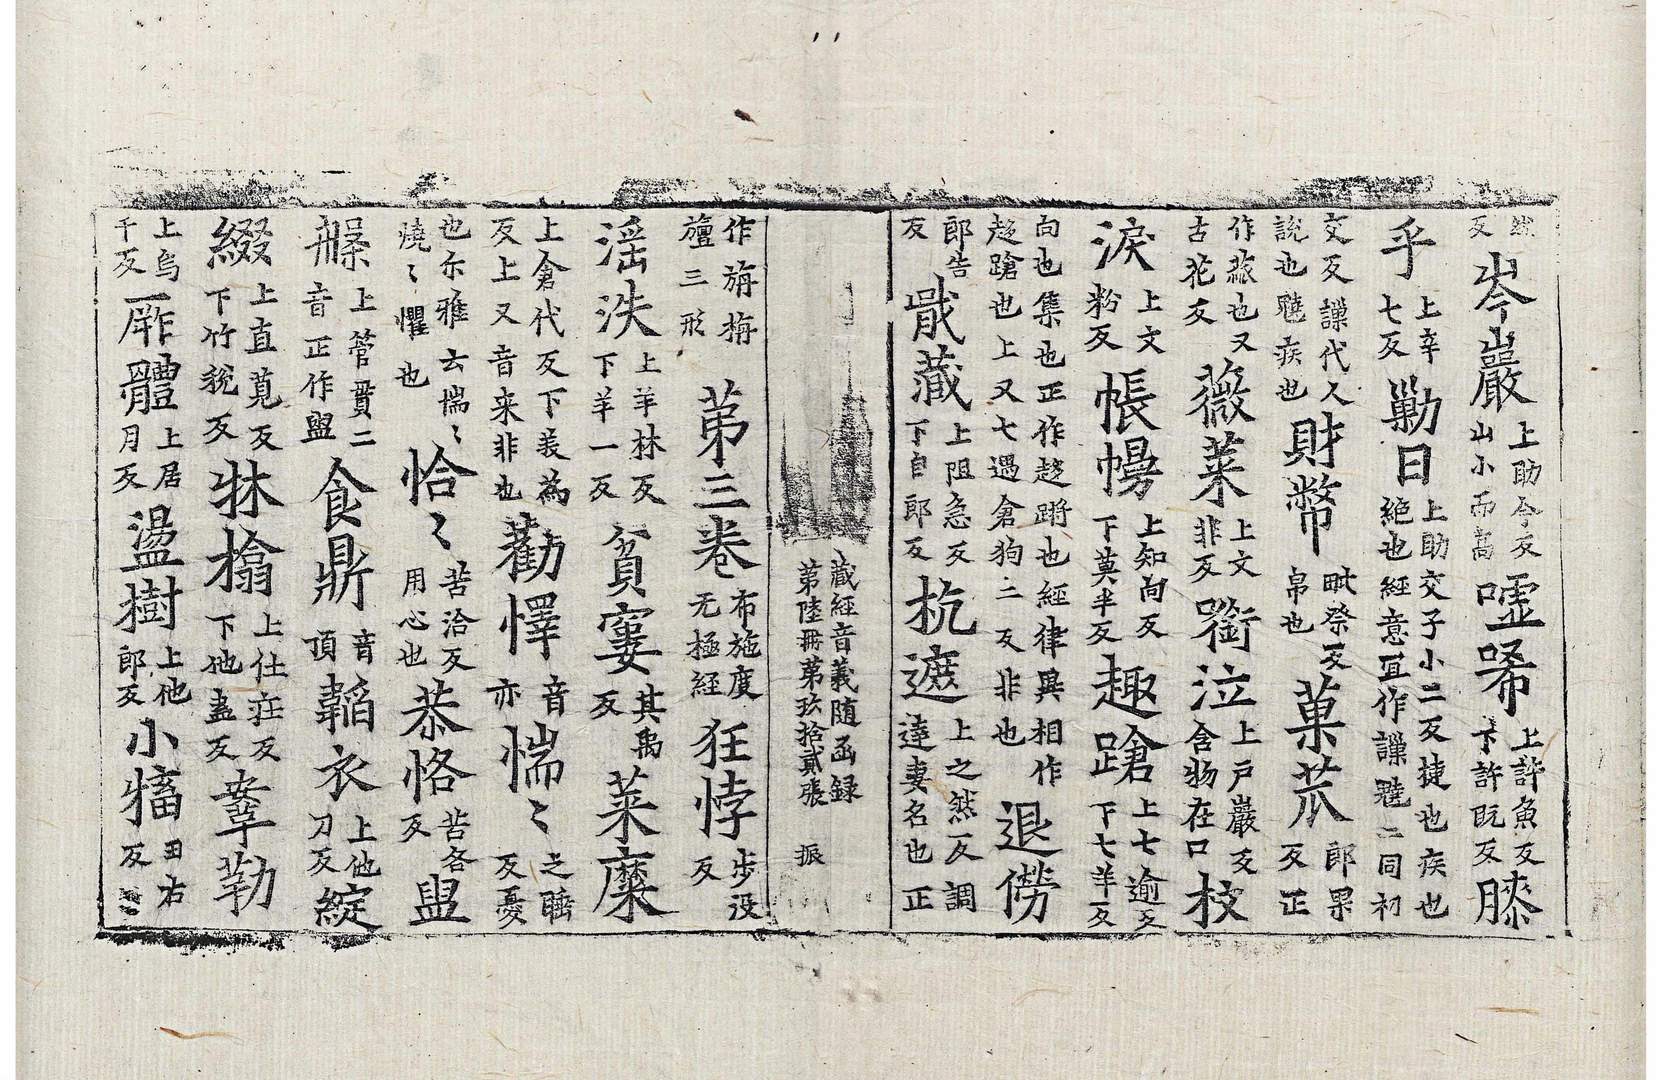 反岑巖上助今反山小而高嘘唏上許魚反下許既反膝
乎上辛七反勦日上助交子小二反捷也疾也絕也經意宜作謙䟐二同初
交反謙代人說也䟐疾也財幣毗祭反帛也菓苽郎果反正
作蓏也又古花反薇菜上文非反銜泣上戶巖反含物在口枝
淚上文粉反帳幔上知向反下莫半反趣蹌上七逾反下七羊反
向也集也正作趍蹡也經律異相作趍蹌也上又七遇倉狗二反非也退僗
郎告反戢藏上阻急反下自郎反杭遮上之然反調達妻名也正
藏經音義随函録
第陸冊第玖拾貳張 振
作旃栴旜三形 第三卷布施度无極經狂悖步没反
滛泆上羊林反下羊一反貧窶其禹反菜糜
上倉代反下美為反上又音来非也勸懌音亦惴〻之睡反憂
也尓雅云惴〻懼也恰〻苦洽反用心也恭恪苦各反盥
澡上管貫二音正作盥食鼎音頂韜衣上他刀反綻
綴上直莧反下竹稅反牀榻上仕莊反下他盍反鞌勒
上烏千反厏體上居月反盪樹上他郎反小牆田右反